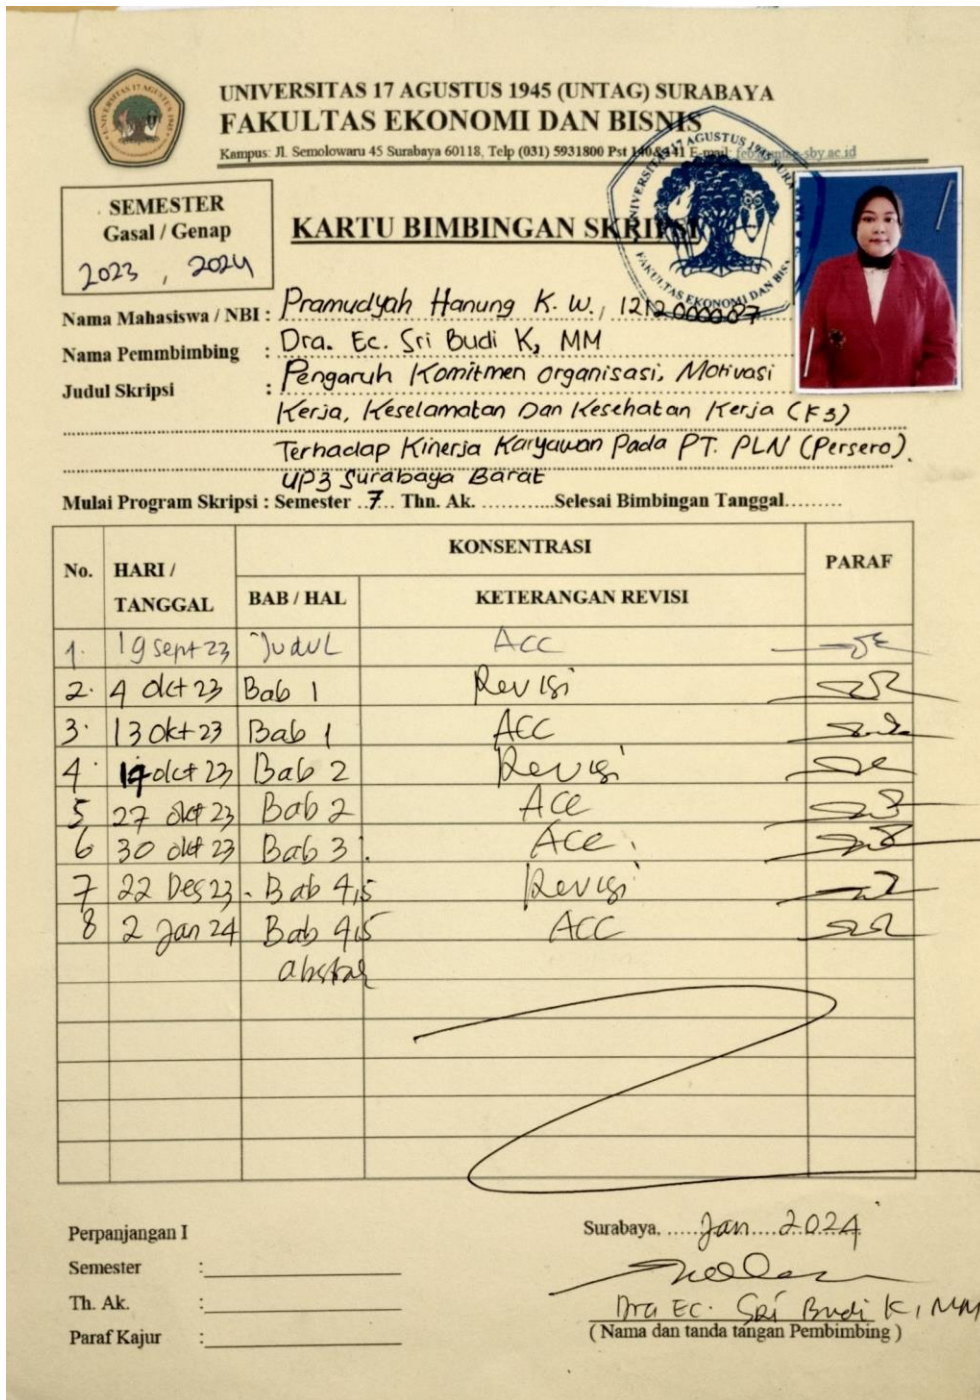 UNIVERSITAS 17 AGUSTUS 1945 (UNTAG) SURABAYA
FAKULTAS EKONOMI DAN BISNIS
Kampus: Jl. Semolowaru 45 Surabaya 60118, Telp (031) 5931800 Pst 140&141 E-mail: sby.ac.id
SEMESTER
Gasal / Genap
2023 , 2024
KARTU BIMBINGAN SKRIPSI
UNIVERSITAS 17 AGUSTUS 1945 SURA
FAKULTAS EKONOMI DAN BIS
Nama Mahasiswa / NBI : Pramudyah Hanung K. W., 1212000087
Nama Pemmbimbing : Dra. Ec. Sri Budi K, MM
Judul Skripsi : Pengaruh Komitmen organisasi, Motivasi
Kerja, Keselamatan Dan Kesehatan Kerja (K3)
Terhadap Kinerja Karyawan Pada PT. PLN (Persero).
UP3 Surabaya Barat
Mulai Program Skripsi : Semester ..7... Thn. Ak. ............Selesai Bimbingan Tanggal.........
No. HARI / TANGGAL KONSENTRASI PARAF
BAB / HAL KETERANGAN REVISI
1. 19 Sept 23 Judul ACC
2. 4 Okt 23 Bab 1 Revisi
3. 13 Okt 23 Bab 1 ACC
4. 14 Okt 23 Bab 2 Revisi
5 27 Okt 23 Bab 2 ACC
6 30 Okt 23 Bab 3. ACC.
7 22 Des 23 - Bab 4,5 Revisi
8 2 Jan 24 Bab 4,5 ACC
abstrak
Perpanjangan I
Semester :
Th. Ak. :
Paraf Kajur :
Surabaya, .....Jan....2024
Dra EC. Sri Budi K, MM
( Nama dan tanda tangan Pembimbing )